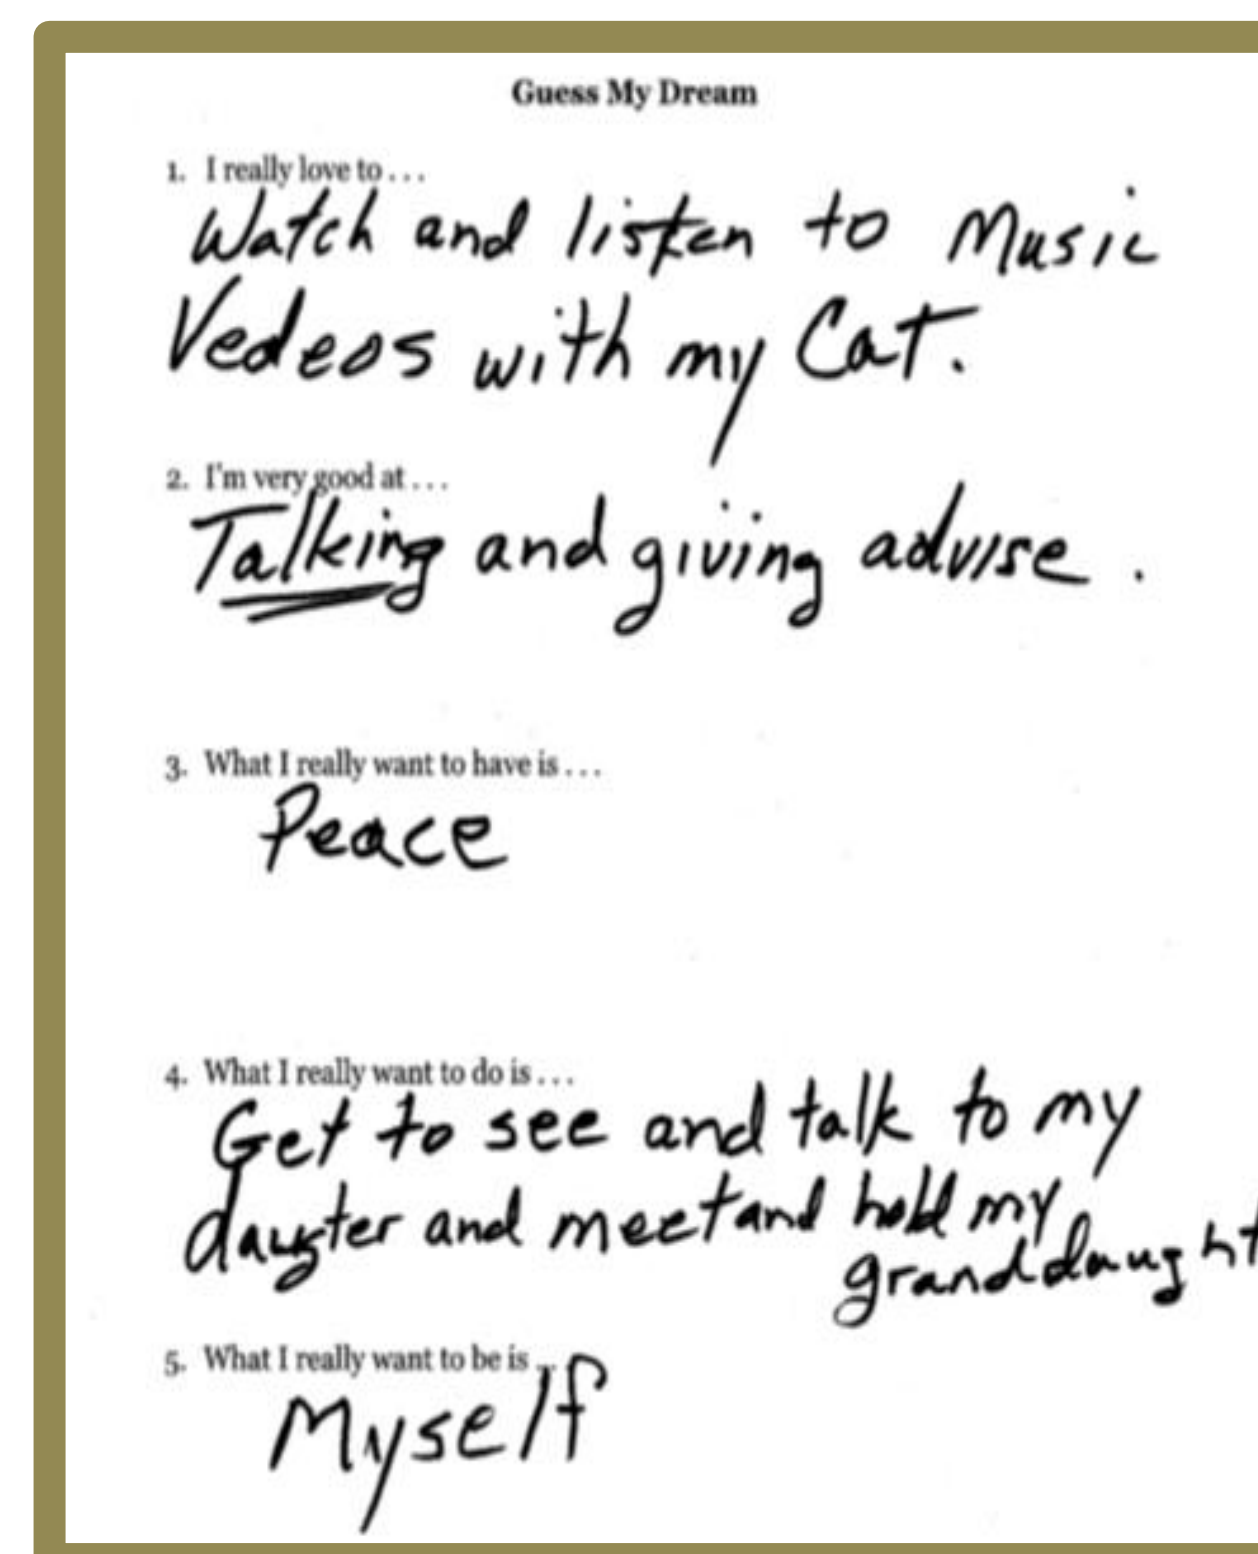 Guess My Dream
1. I really love to . . .
Watch and listen to Music
Vedeos with my Cat.
2. I'm very good at . . .
Talking and giving advise .
3. What I really want to have is . . .
Peace
4. What I really want to do is . . .
Get to see and talk to my
daugter and meet and hold my
granddaught
5. What I really want to be is ...
Myself